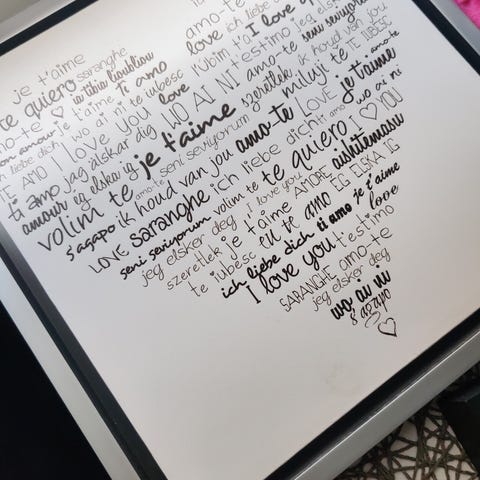 amo-te ich liebe d
je t'aime love ich liebe I love y
te quiero saranghe iubim t'a t'estimo leg els
amo-te ti amo amo-te seni seviyoru
mon amour je t'aime ti amo WO AI NI szeretlek ik houd van jou
liebe dich wo ai ni te iubesc love miluji te TE IUBESC
TE AMO I love you je t'aime LOVE je t'aime amo-te
ti amo jag älskar dig seni seviyorum amo-te wo ai ni
amour ig elska ig ich liebe dich ti amo I YOU
volim te ik houd van jou te quiero aishitemasu
s'agapo saranghe volim te I love you AMORE EG ELSKA IG
LOVE seni seviyorum je t'aime amo je t'aime
jeg elsker deg eu te amo love
szeretlek ich liebe dich ti amo t'estimo
te iubesc I love you amo-te
SARANGHE jeg elsker deg
wo ai ni
s'agapo